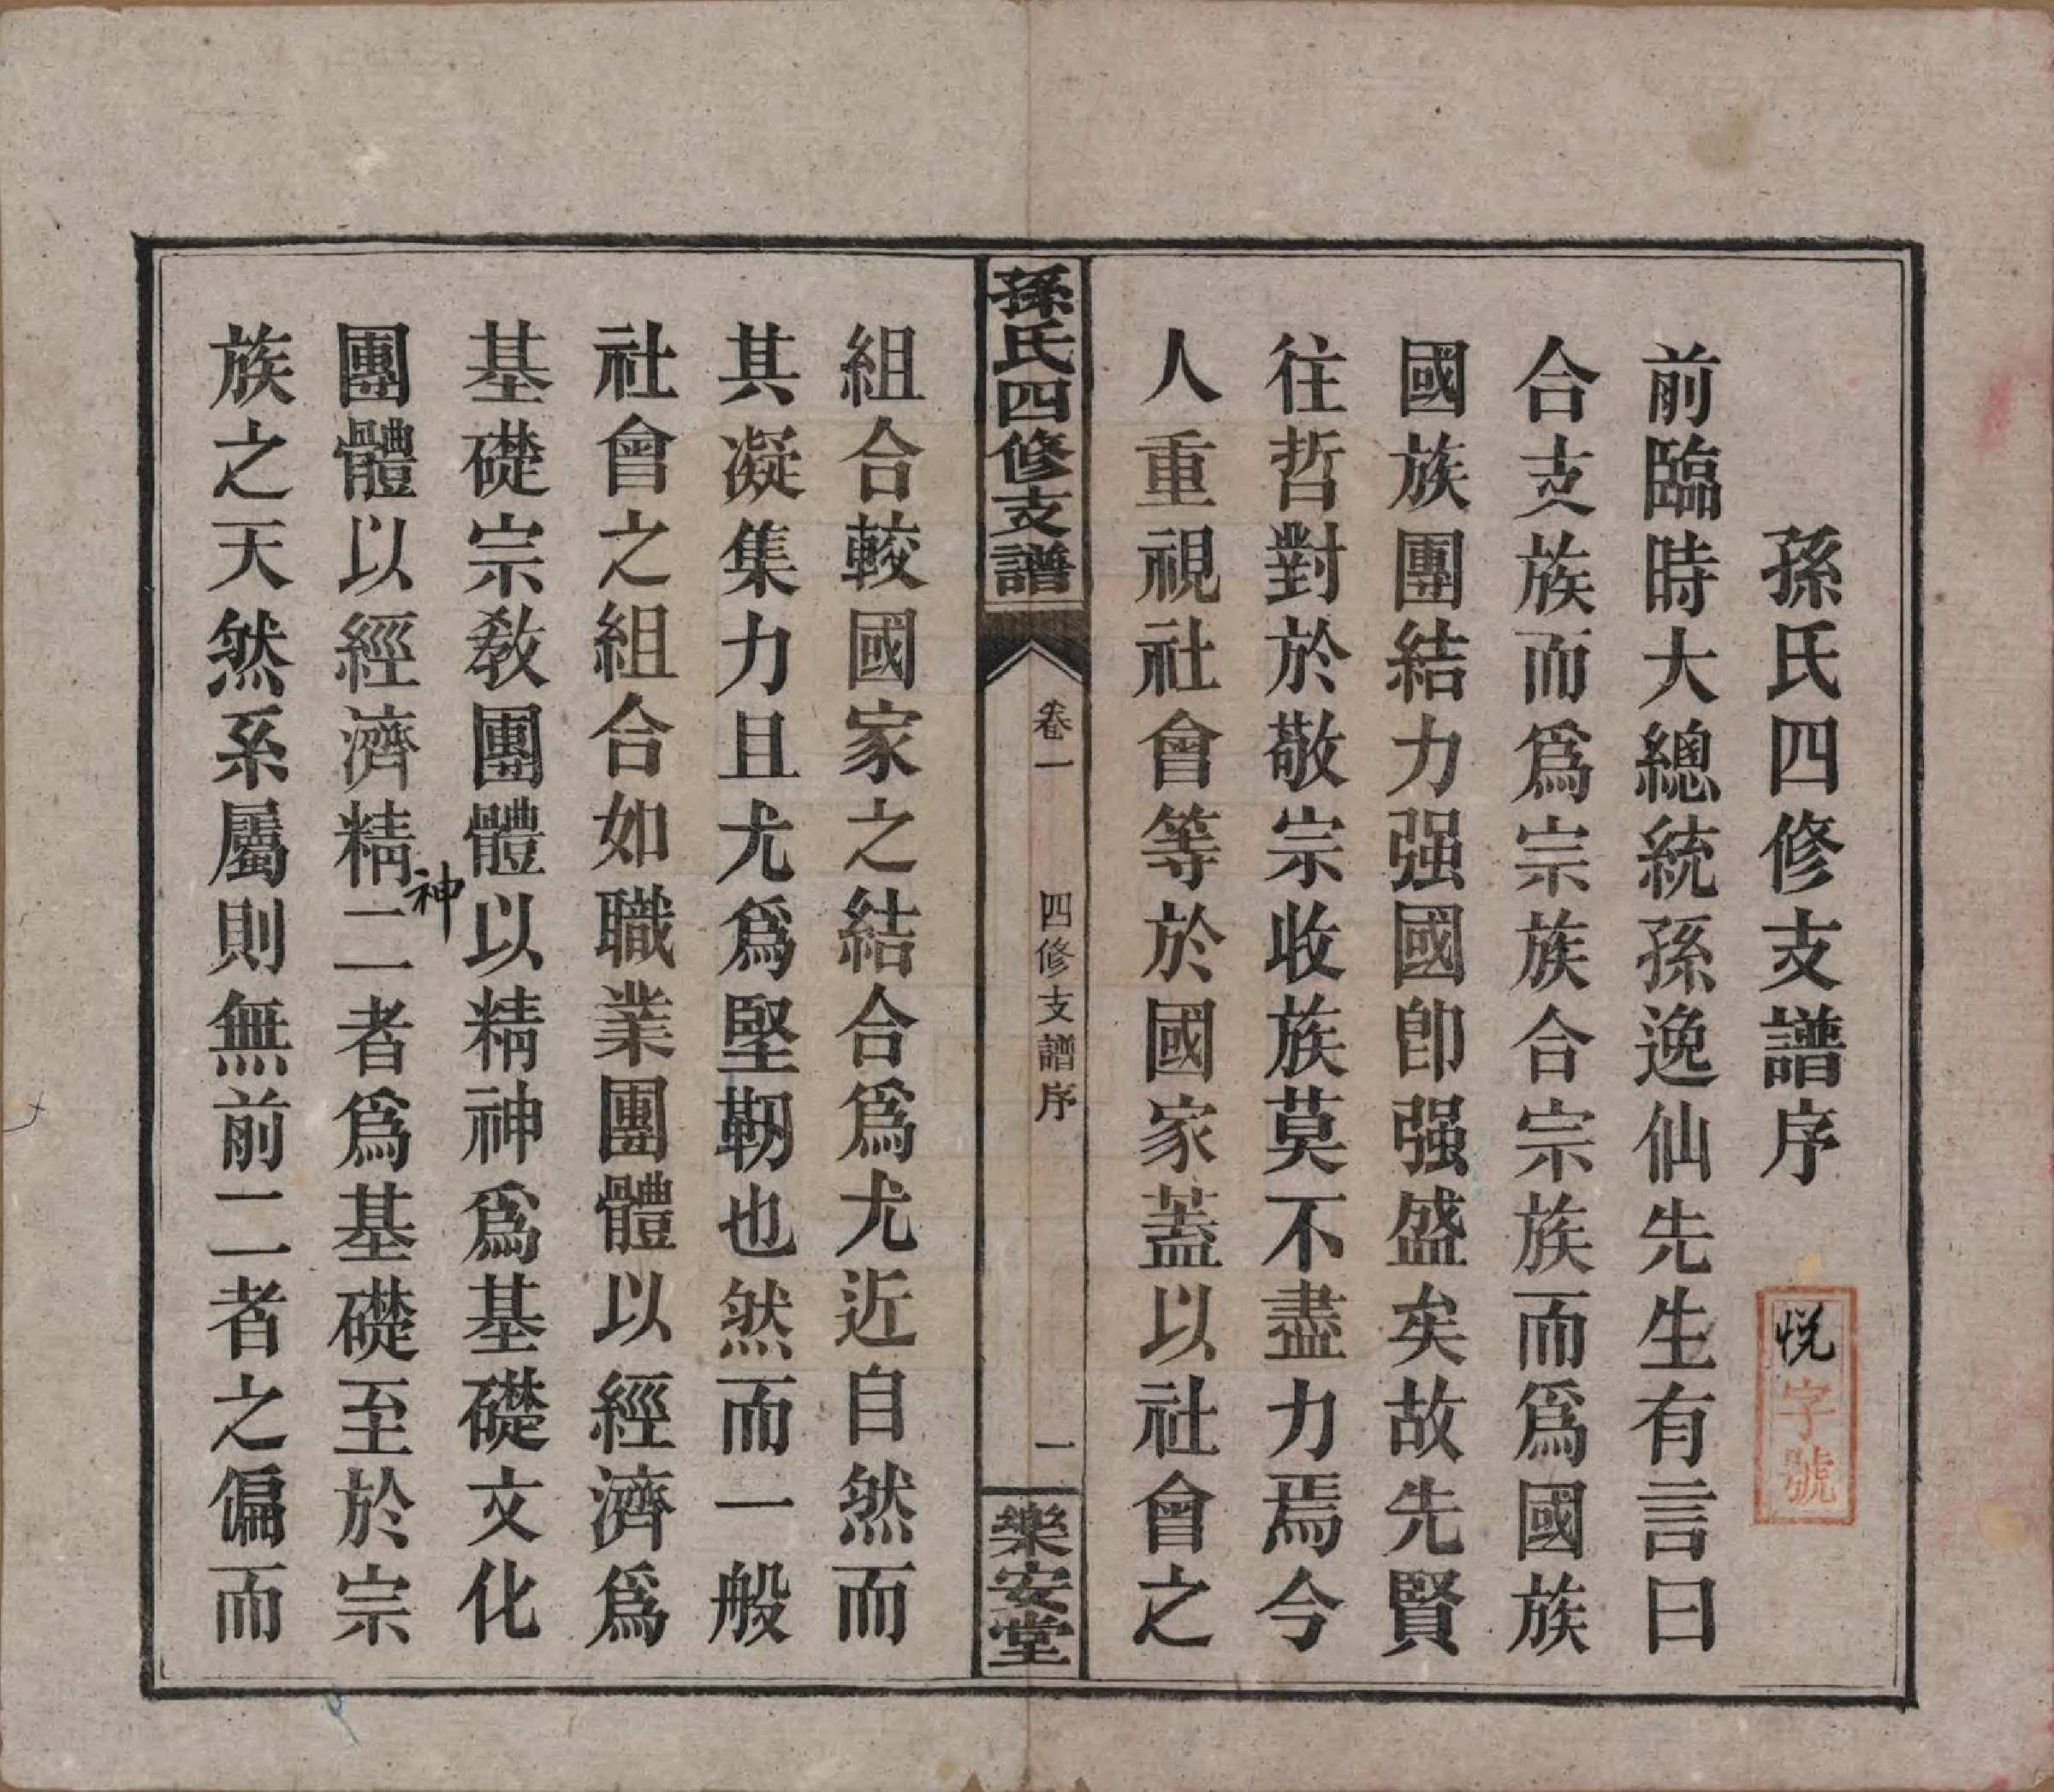 孫氏四修支譜序
悦字號
前臨時大總統孫逸仙先生有言曰
合支族而爲宗族合宗族而爲國族
國族團結力强國卽强盛矣故先賢
往哲對於敬宗收族莫不盡力焉今
人重視社會等於國家蓋以社會之
孫氏四修支譜
卷一
四修支譜序
一
樂安堂
組合較國家之結合爲尤近自然而
其凝集力且尤爲堅韌也然而一般
社會之組合如職業團體以經濟爲
基礎宗敎團體以精神爲基礎文化
團體以經濟精神二者爲基礎至於宗
族之天然系屬則無前二者之偏而